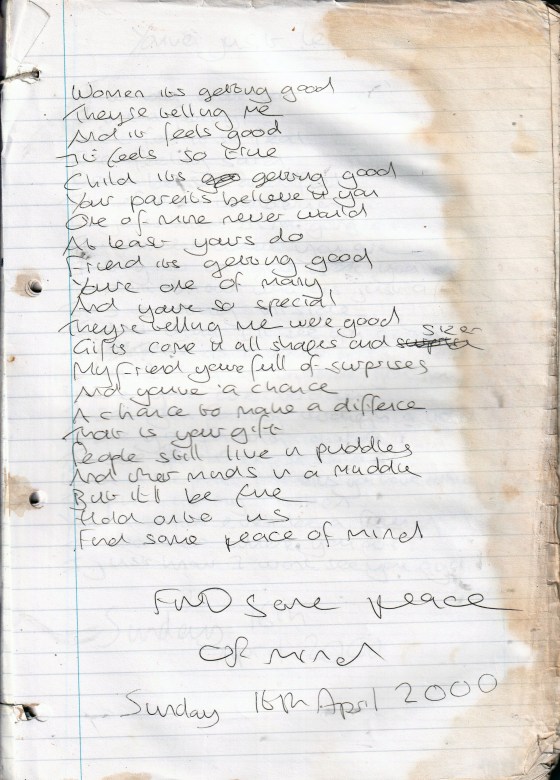 Women its getting good
They're telling me
And it feels good
It feels so true
Child its getting good
Your parents believe in you
One of mine never would
At least yours do
Friend its getting good
You're one of many
And you're so special
They're telling me we're good
Gifts come in all shapes and sizes
My friend you're full of surprises
And you've a chance
A chance to make a diffence
That is your gift
People still live in puddles
And their minds in a muddle
But it'll be fine
Hold onto us
Find some peace of mind
FIND some peace
OF mind
Sunday 16th April 2000